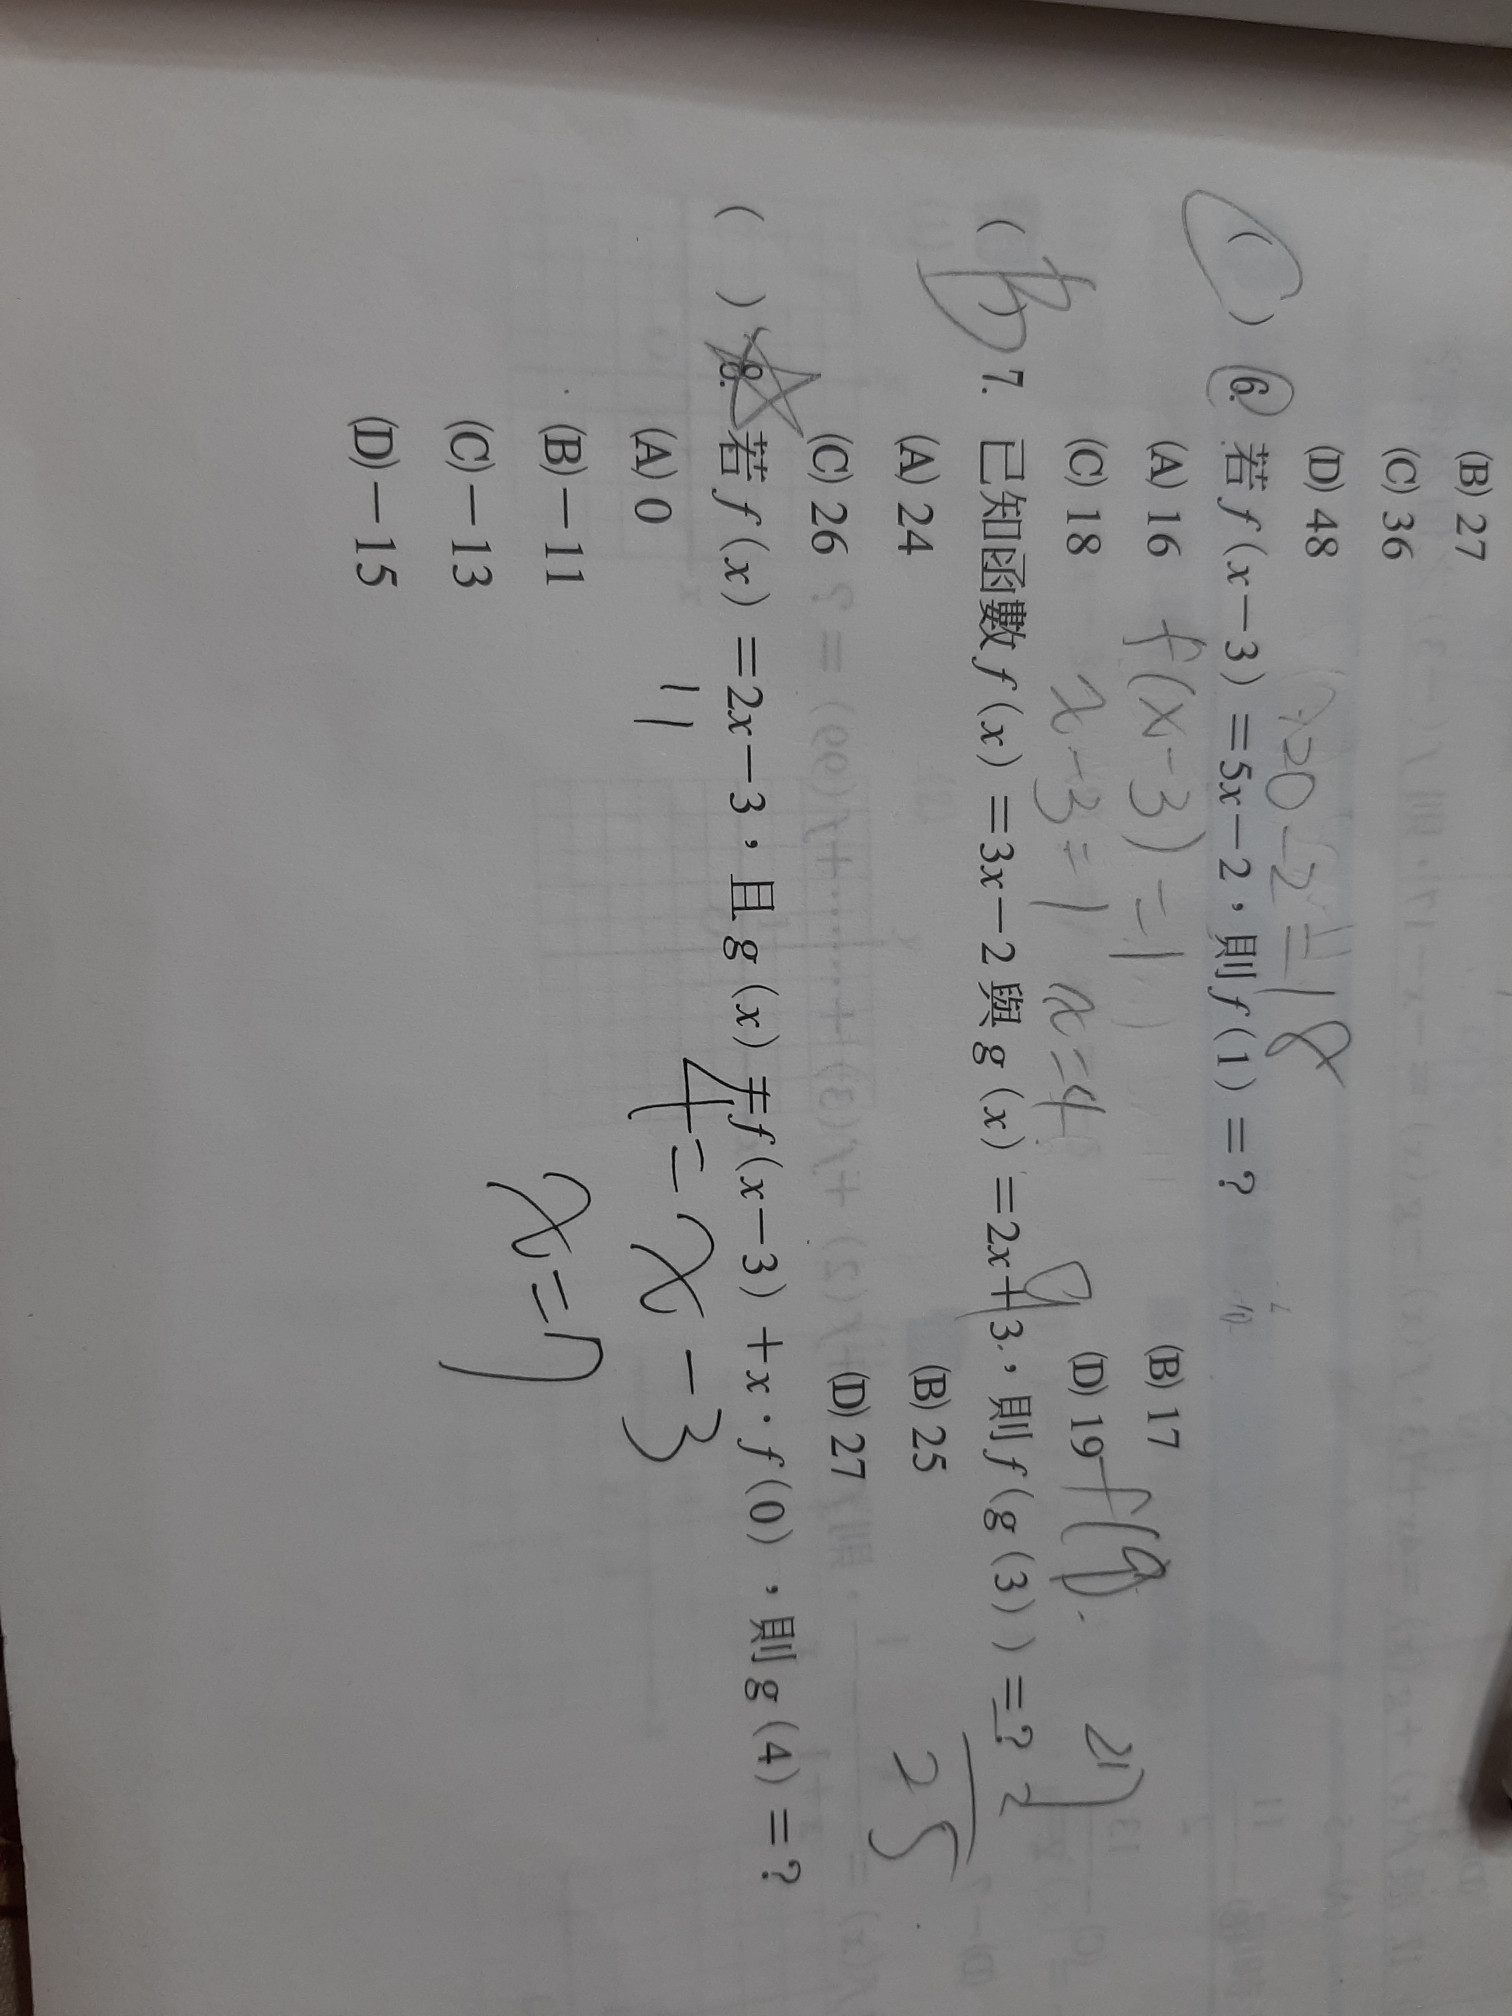 (B) 27
(C) 36
(D) 48
20-2=18
( C ) 6. 若 f (x－3) ＝5x－2，則 f (1) ＝？
(A) 16 (B) 17
f(x-3)=1
(C) 18 (D) 19
x-3=1 x=4
f(9)
27
2
9
( B ) 7. 已知函數 f (x) ＝3x－2 與 g (x) ＝2x＋3，則 f (g (3)) ＝？
(A) 24 (B) 25
25
(C) 26 (D) 27
( ) 8. 若 f (x) ＝2x－3，且 g (x) ＝f (x－3) ＋x · f (0)，則 g (4) ＝？
(A) 0
11
4=x-3
(B) －11
x=7
(C) －13
(D) －15